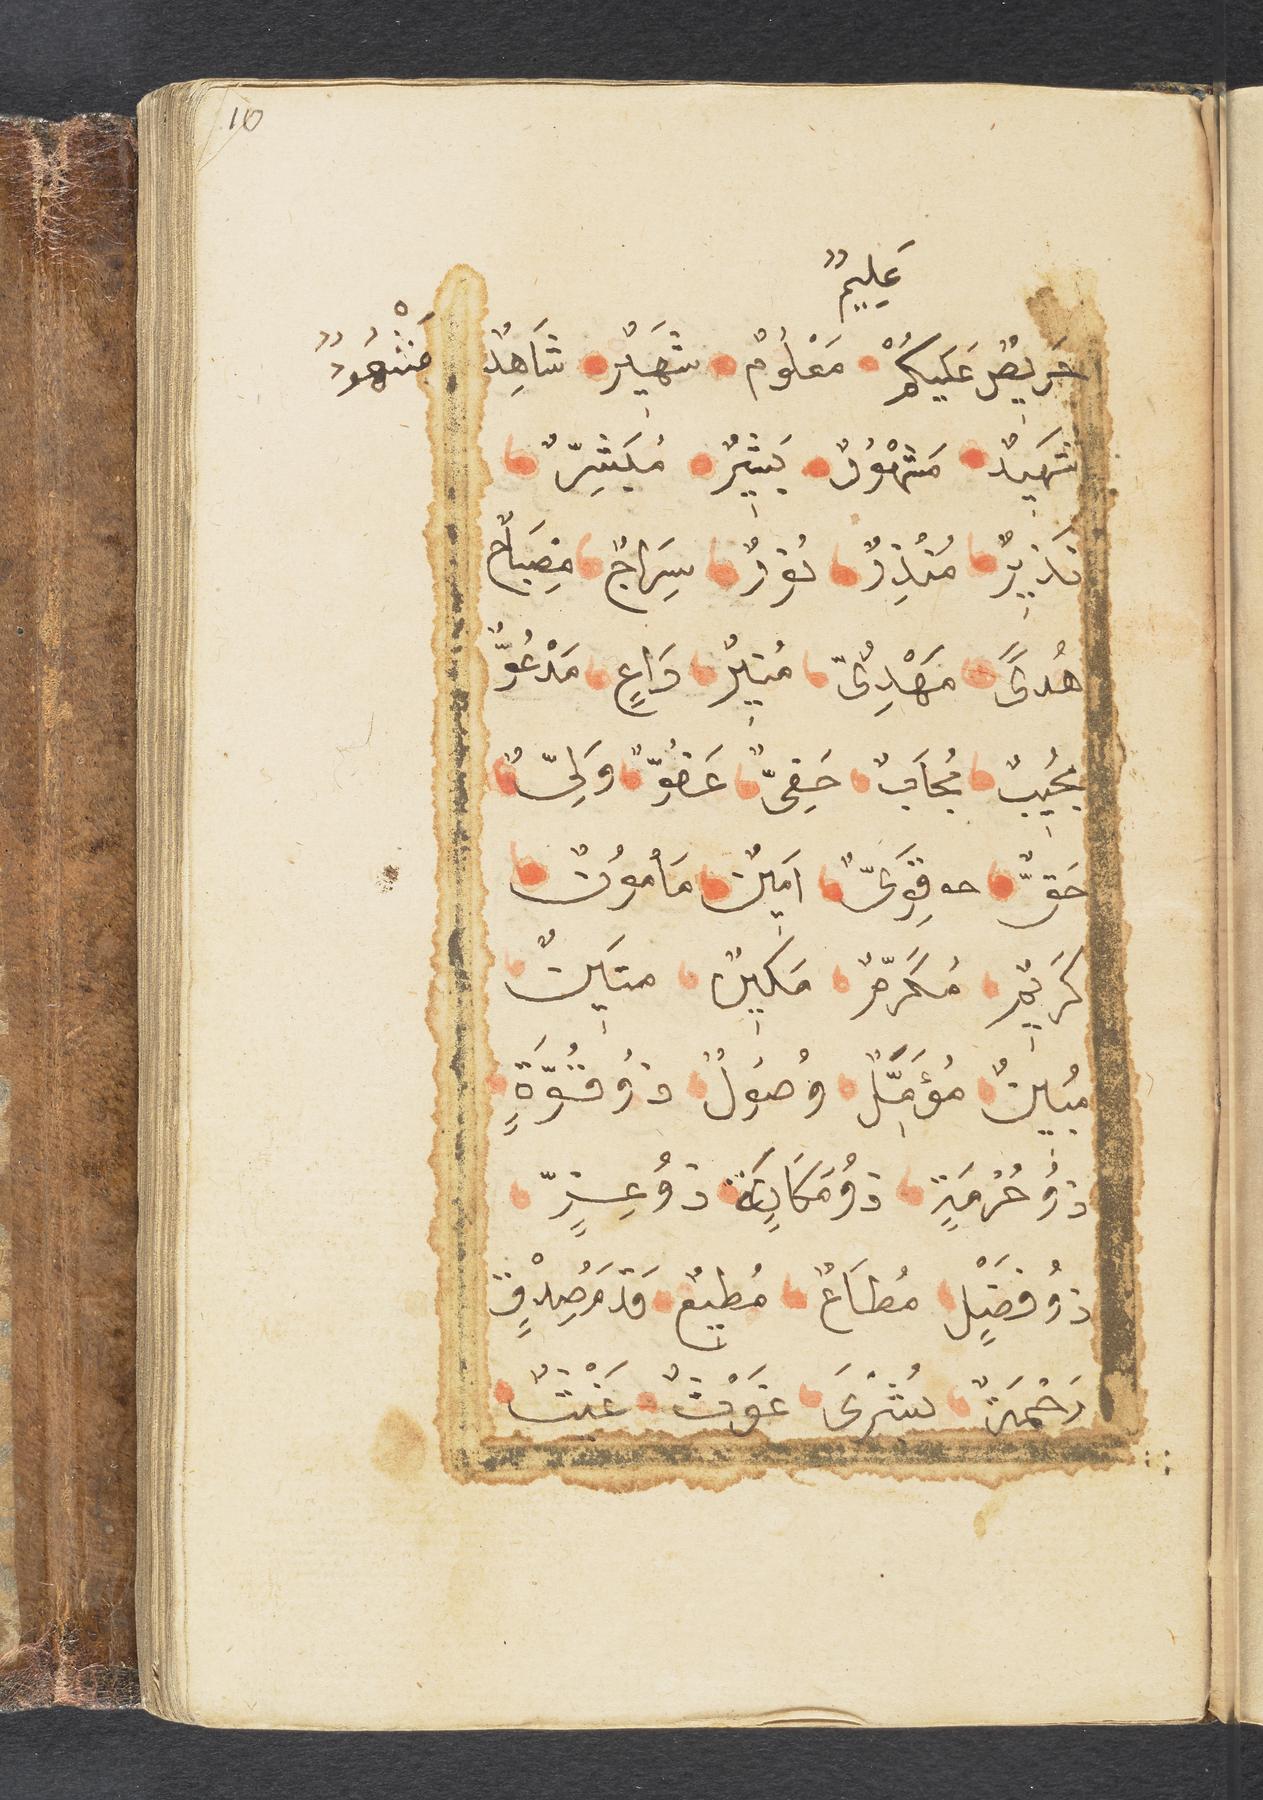 10
عَلِيمٌ
حَرِيصٌ عَلَيكُمْ مَعْلُومٌ شَهِيرٌ شَاهِدٌ مَشْهُودٌ
شَهِيدٌ مَشْهُودٌ بَشِيرٌ مُبَشِّرٌ
نَذِيرٌ مُنْذِرٌ نُورٌ سِرَاجٌ مِصْبَاحٌ
هُدىً مَهْدِىٌّ مُنِيرٌ دَاعٍ مَدْعُوٌّ
مُجِيبٌ مُجَابٌ حَفِىٌّ عَفُوٌّ وَلِىٌّ
حَقٌّ قَوِىٌّ اَمِينٌ مَأمُونٌ
كَرِيمٌ مُكَرَّمٌ مَكِينٌ مَتِينٌ
مُبِينٌ مُؤَمَّلٌ وَصُولٌ ذُو قُوَّةٍ
ذُو حُرْمَةٍ ذُو مَكَانَةٍ ذُو عِزٍّ
ذُو فَضْلٍ مُطَاعٌ مُطِيعٌ قَدَمُ صِدْقٍ
رَحْمَةٌ بُشْرَى غَوْثٌ غَيْثٌ